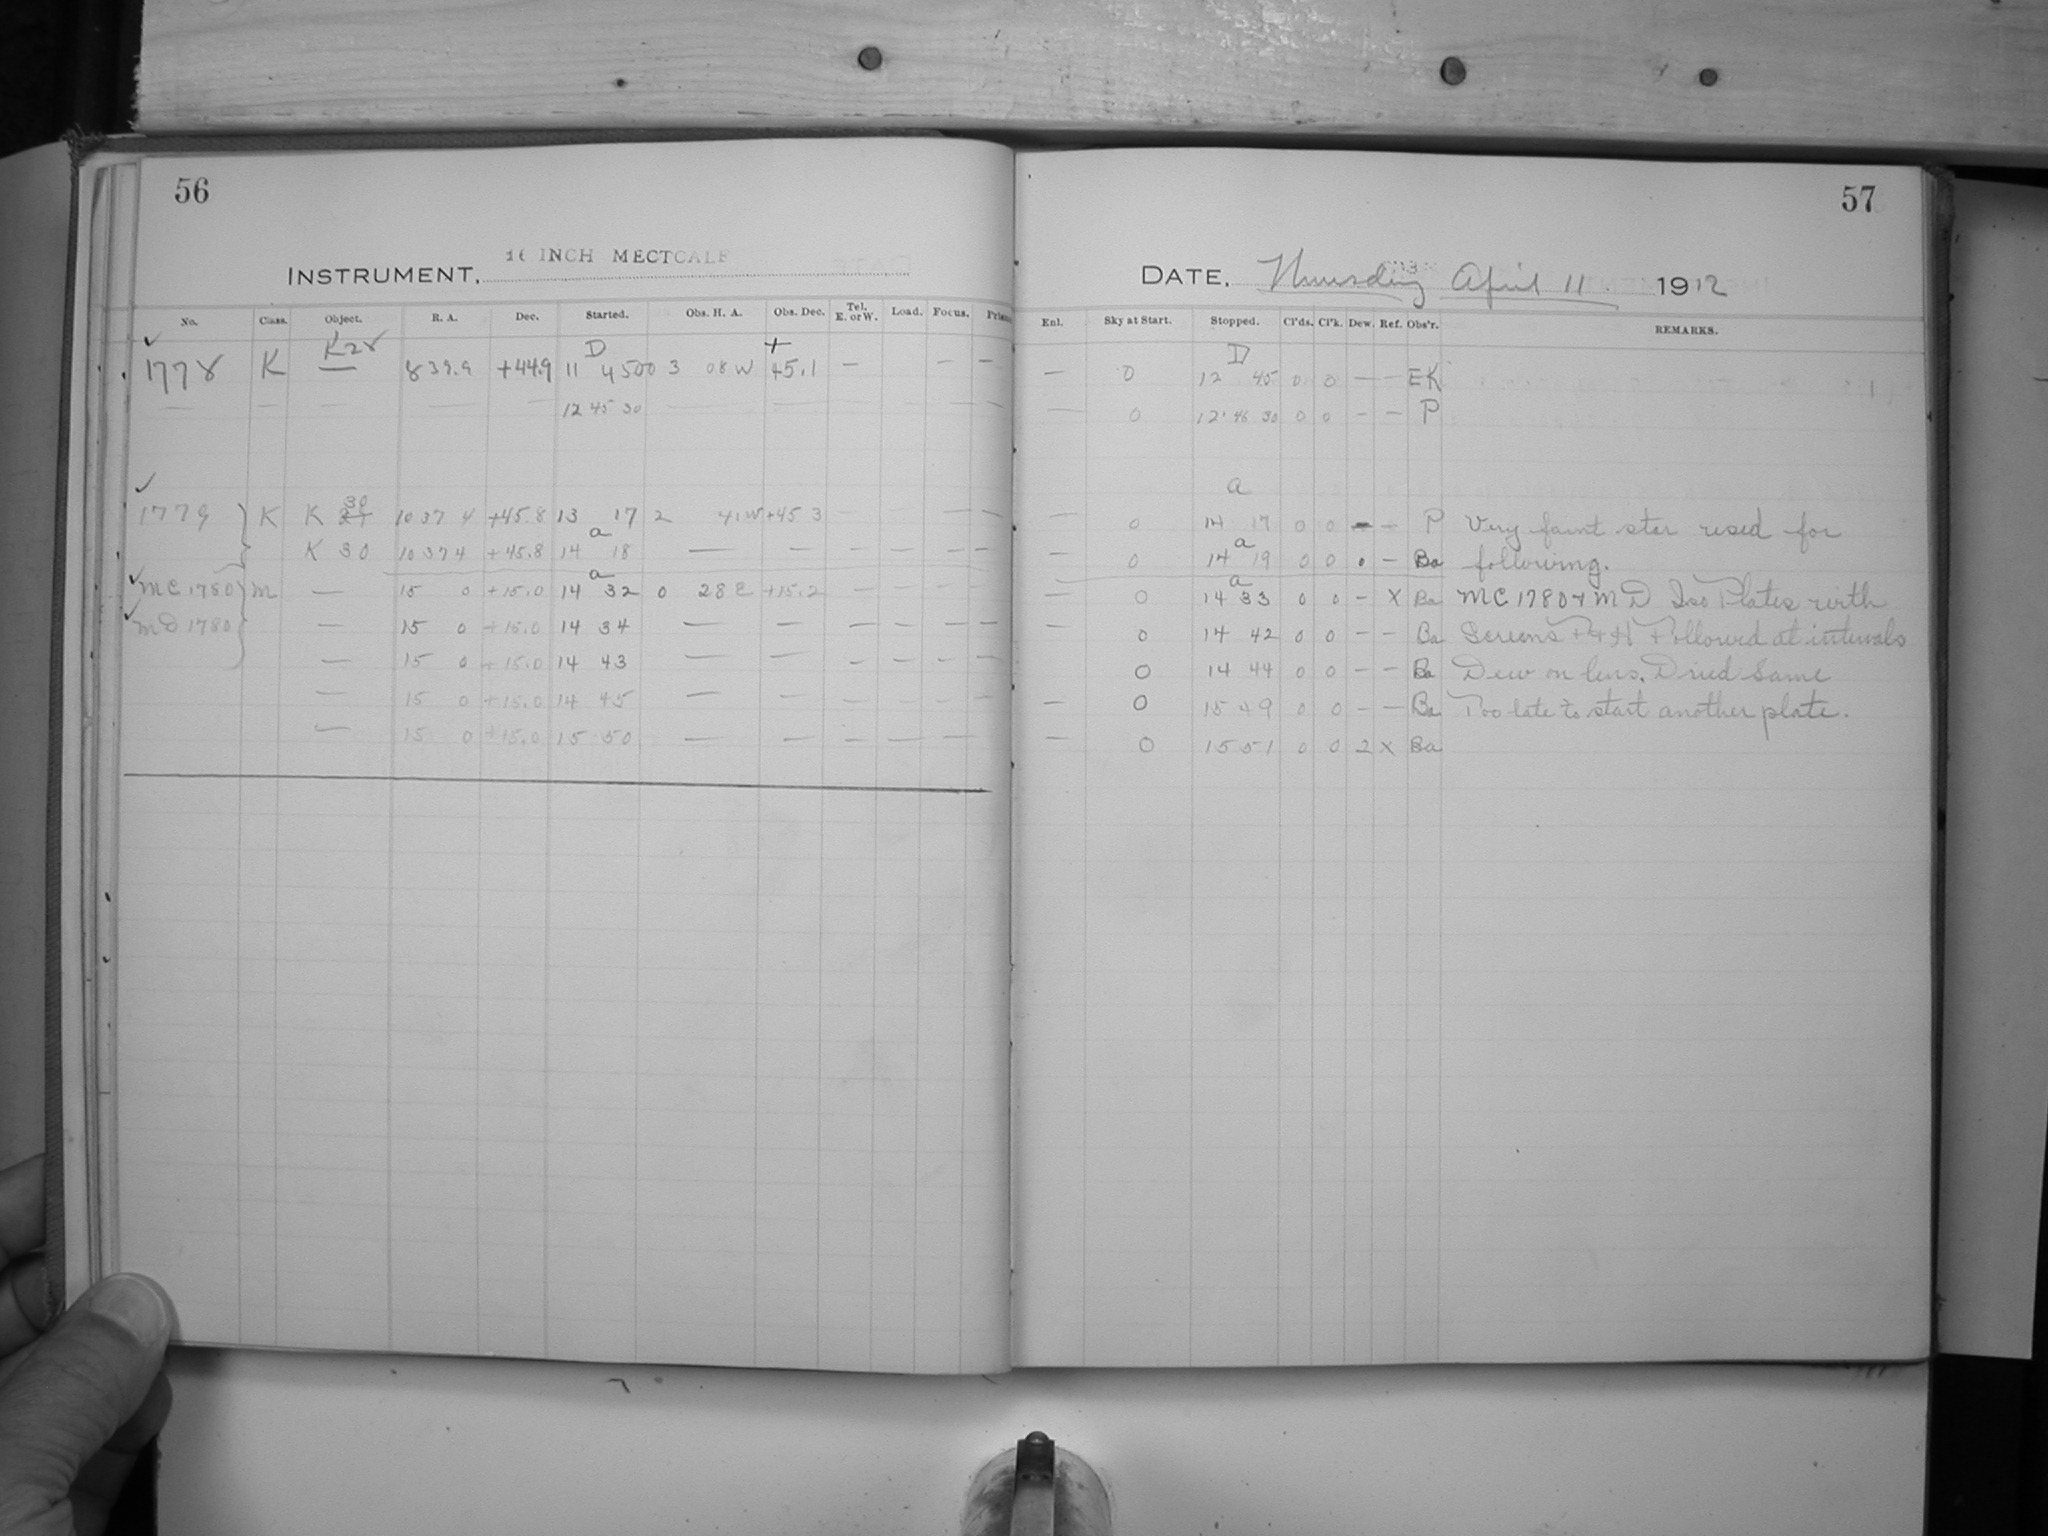 56
16 INCH MECTCALF
INSTRUMENT,
No. Class. Object. R. A. Dec. Started. Obs. H. A. Obs. Dec. Tel. E. or W. Load. Focus. Prism
K28 D +
1778 K — 8 39.9 +44.9 11 45 00 3 08 W 45.1 — — —
— — — — — 12 45 30 — — — —
30
1779 K K 10 37 4 +45.8 13 17 2 41 W +45 3 — — —
a
K 30 10 37 4 +45.8 14 18 — — — — — —
a
MC 1780 M — 15 0 +15.0 14 32 0 28 E +15.2 — — —
MD 1780 — 15 0 +15.0 14 34 — — — — — —
— 15 0 +15.0 14 43 — — — — — —
— 15 0 +15.0 14 45 — — — — — —
— 15 0 +15.0 15 50 — — — — — —
57
DATE, Thursday April 11 1912
Enl. Sky at Start. Stopped. Cl'ds. Cl'k. Dew. Ref. Obs'r. REMARKS.
D
— 0 12 45 0 0 — — EK
— 0 12 46 30 0 0 — — P
a
— 0 14 17 0 0 — — P Very faint star used for
a
— 0 14 19 0 0 • — Ba following.
a
— 0 14 33 0 0 — X Ba MC 1780 + MD Iso Plates with
— 0 14 42 0 0 — — Ba Screens F + H Followed at intervals
0 14 44 0 0 — — Ba Dew on lens. Dried Same
— 0 15 49 0 0 — — Ba Too late to start another plate.
— 0 15 51 0 0 2 X Ba